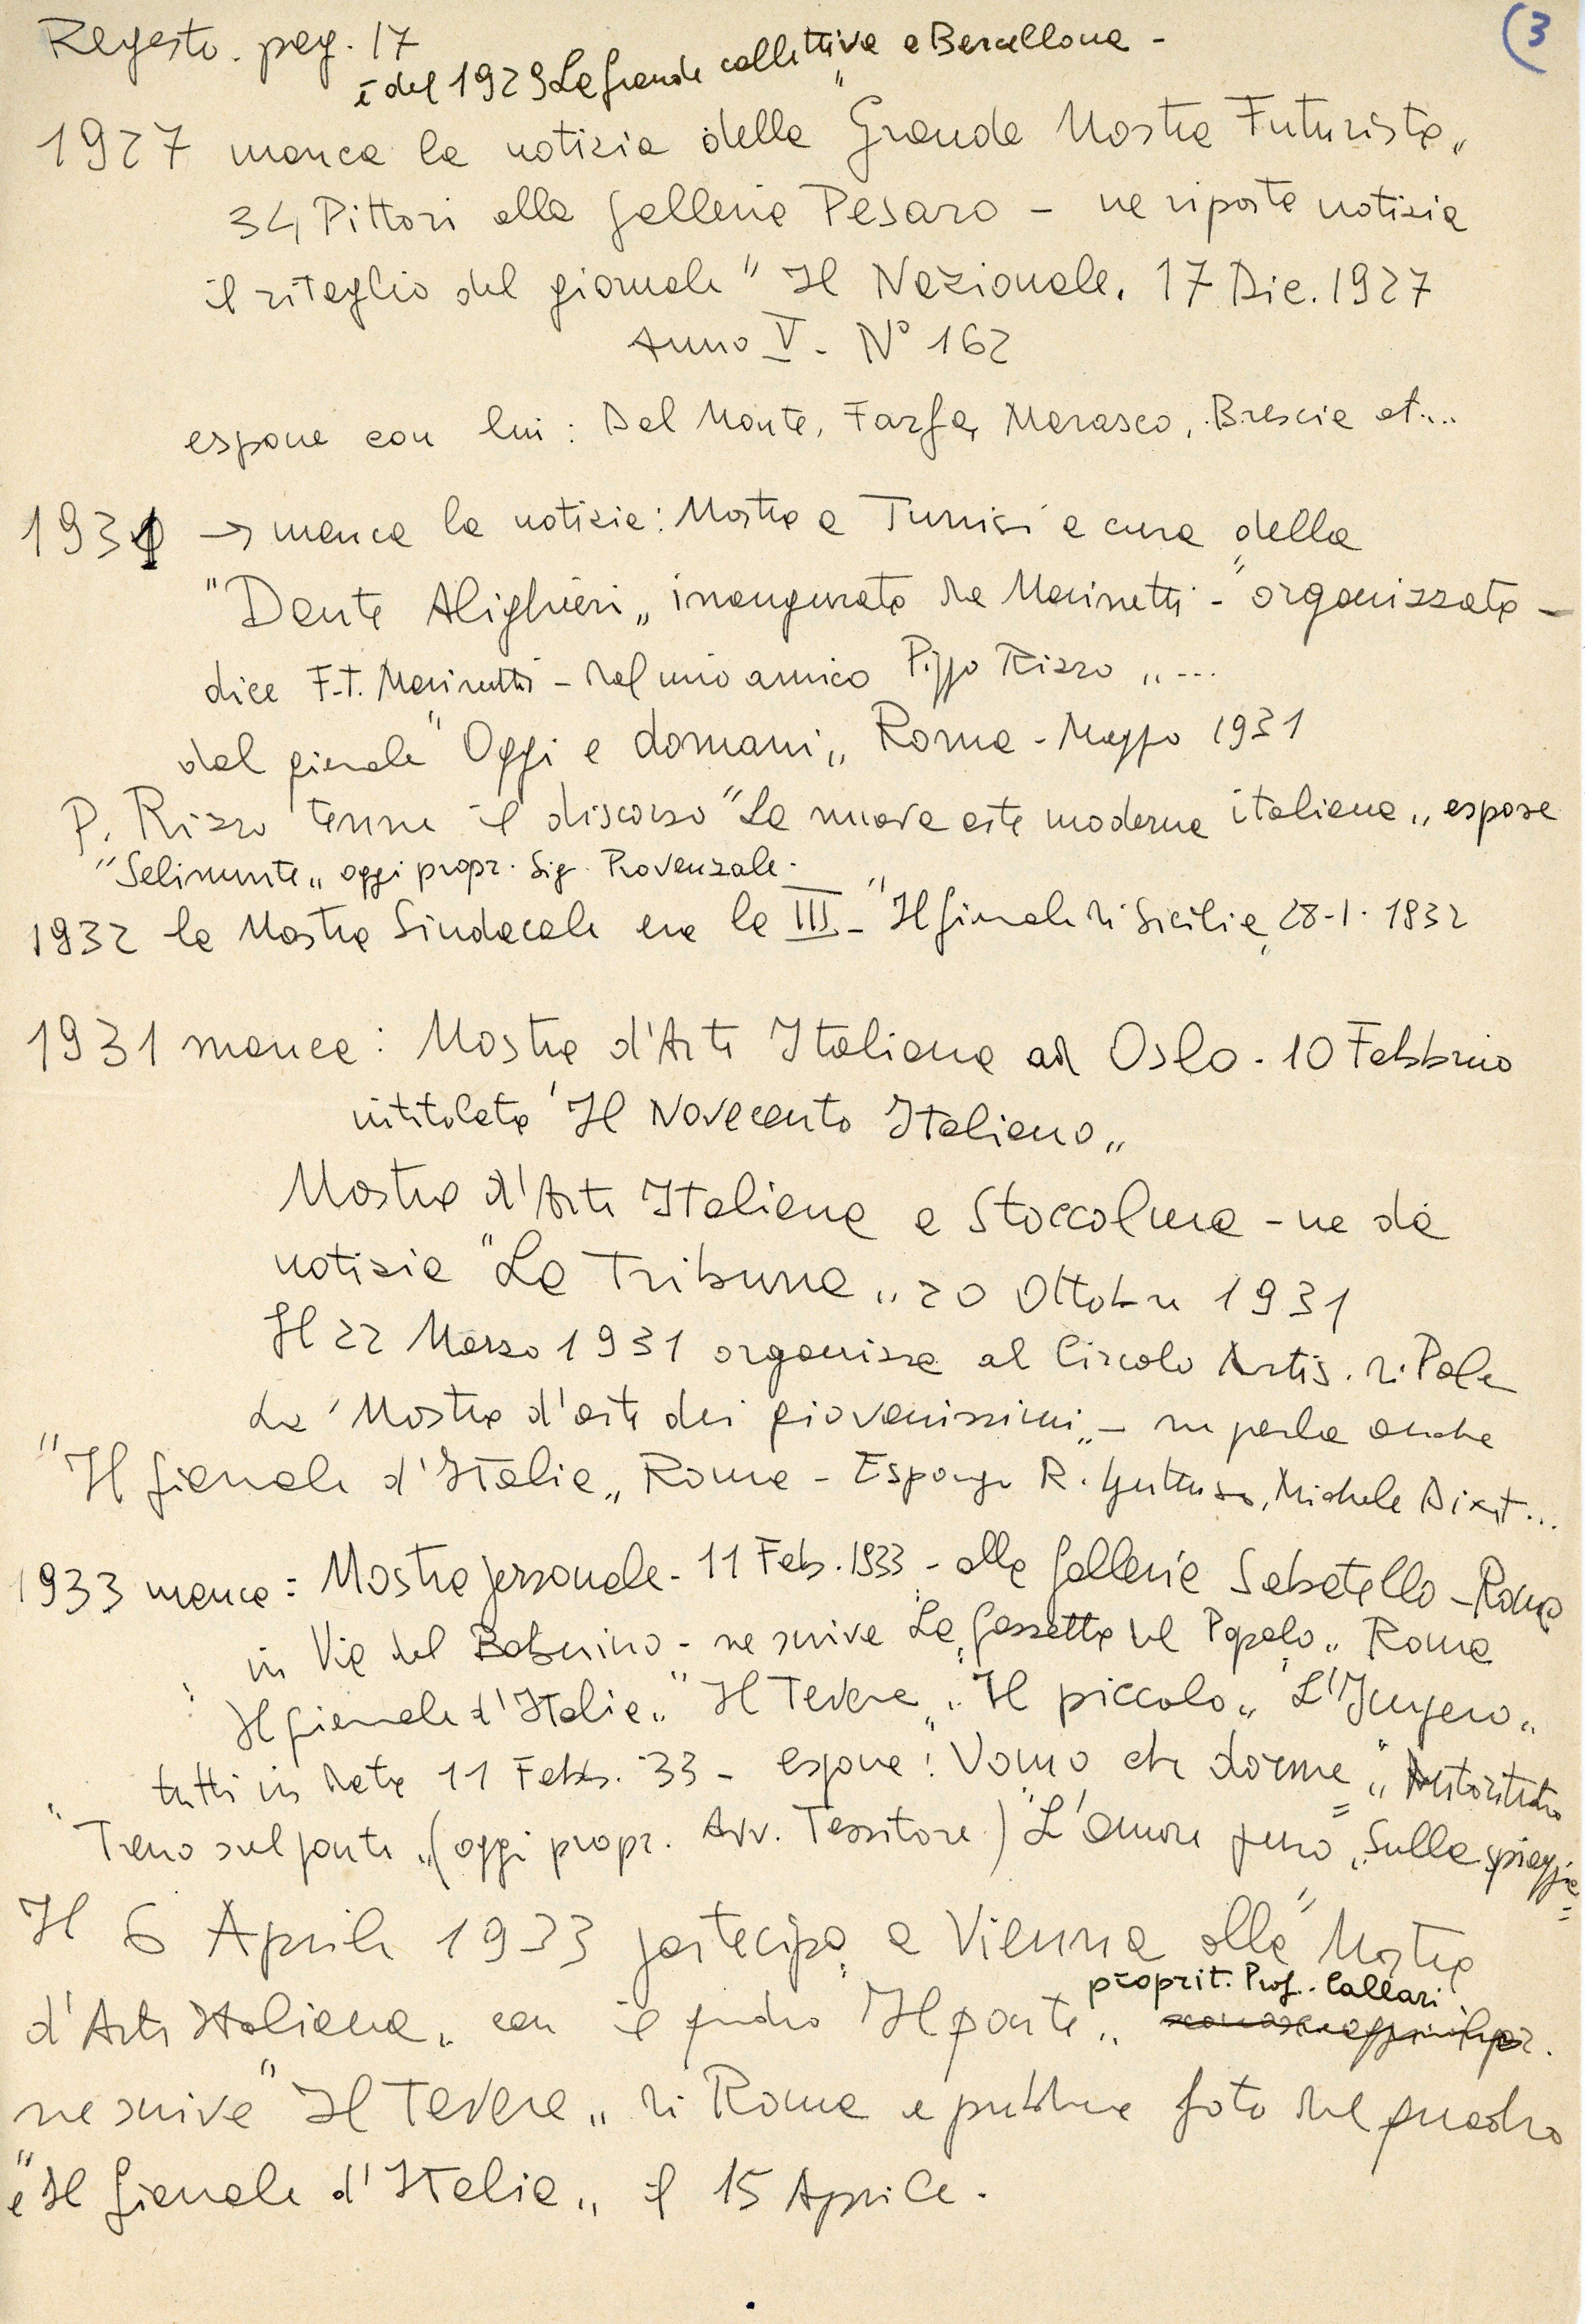 (3
Regesto. pag. 17
è del 1929 La grande collettiva a Barcellona -
1927 manca la notizia della "Grande Mostra Futurista„
34 Pittori alla galleria Pesaro - ne riporta notizia
il ritaglio del giornale "Il Nazionale. 17 Dic. 1927
Anno V - N° 162
espone con lui: Dal Monte, Farfa, Marasco, Brescia et...
1931 → manca la notizia: Mostra a Tunisi a cura della
"Dante Alighieri„ inaugurata da Marinetti - "organizzata -
dice F.T. Marinetti - dal mio amico Pippo Rizzo„ ...
dal giornale "Oggi e domani„ Roma - Maggio 1931
P. Rizzo tenne il discorso "La nuova arte moderna italiana„ espose
"Selinunte„ oggi propr. Sig. Provenzale.
1932 la Mostra Sindacale era la III - "Il giornale di Sicilia„ 28-I-1932
1931 manca: Mostra d'Arte Italiana ad Oslo - 10 Febbraio
intitolata "Il Novecento Italiano„
Mostra d'Arte Italiana a Stoccolma - ne dà
notizia "La Tribuna„ 20 Ottobre 1931
Il 22 Marzo 1931 organizza al Circolo Artis. di Pale
La "Mostra d'arte dei giovanissimi„ - ne parla anche
"Il giornale d'Italia„ Roma - Espongo R. Guttuso, Michele Dixit...
1933 manca: Mostra personale - 11 Feb. 1933 - alla Galleria Sabatello - Roma
in Via del Babuino - ne scrive "La Gazzetta del Popolo„ Roma
"Il giornale d'Italia„ "Il Tevere„ "Il piccolo„ "L'Impero„
tutti in data 11 Febb. 33 - espone: "Uomo che dorme„ "Autoritratto
"Treno sul ponte„ (oggi propr. Avv. Tessitore) "L'amore puro„ "Sulla spiaggia
Il 6 Aprile 1933 partecipa a Vienna alla "Mostra
d'Arte Italiana„ con il quadro "Il ponte„ propriet. Prof. Callari
ne scrive "Il Tevere„ di Roma e pubblica foto del quadro
e "Il Giornale d'Italia„ il 15 Aprile.